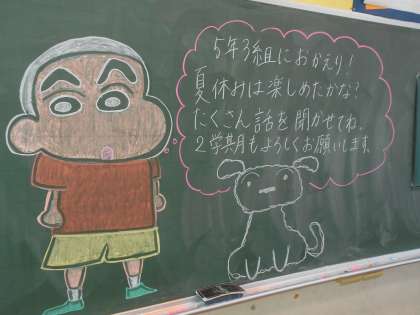 5年3組におかえり!
夏休みは楽しめたかな?
たくさん話を聞かせてね。
2学期もよろしくお願いします。